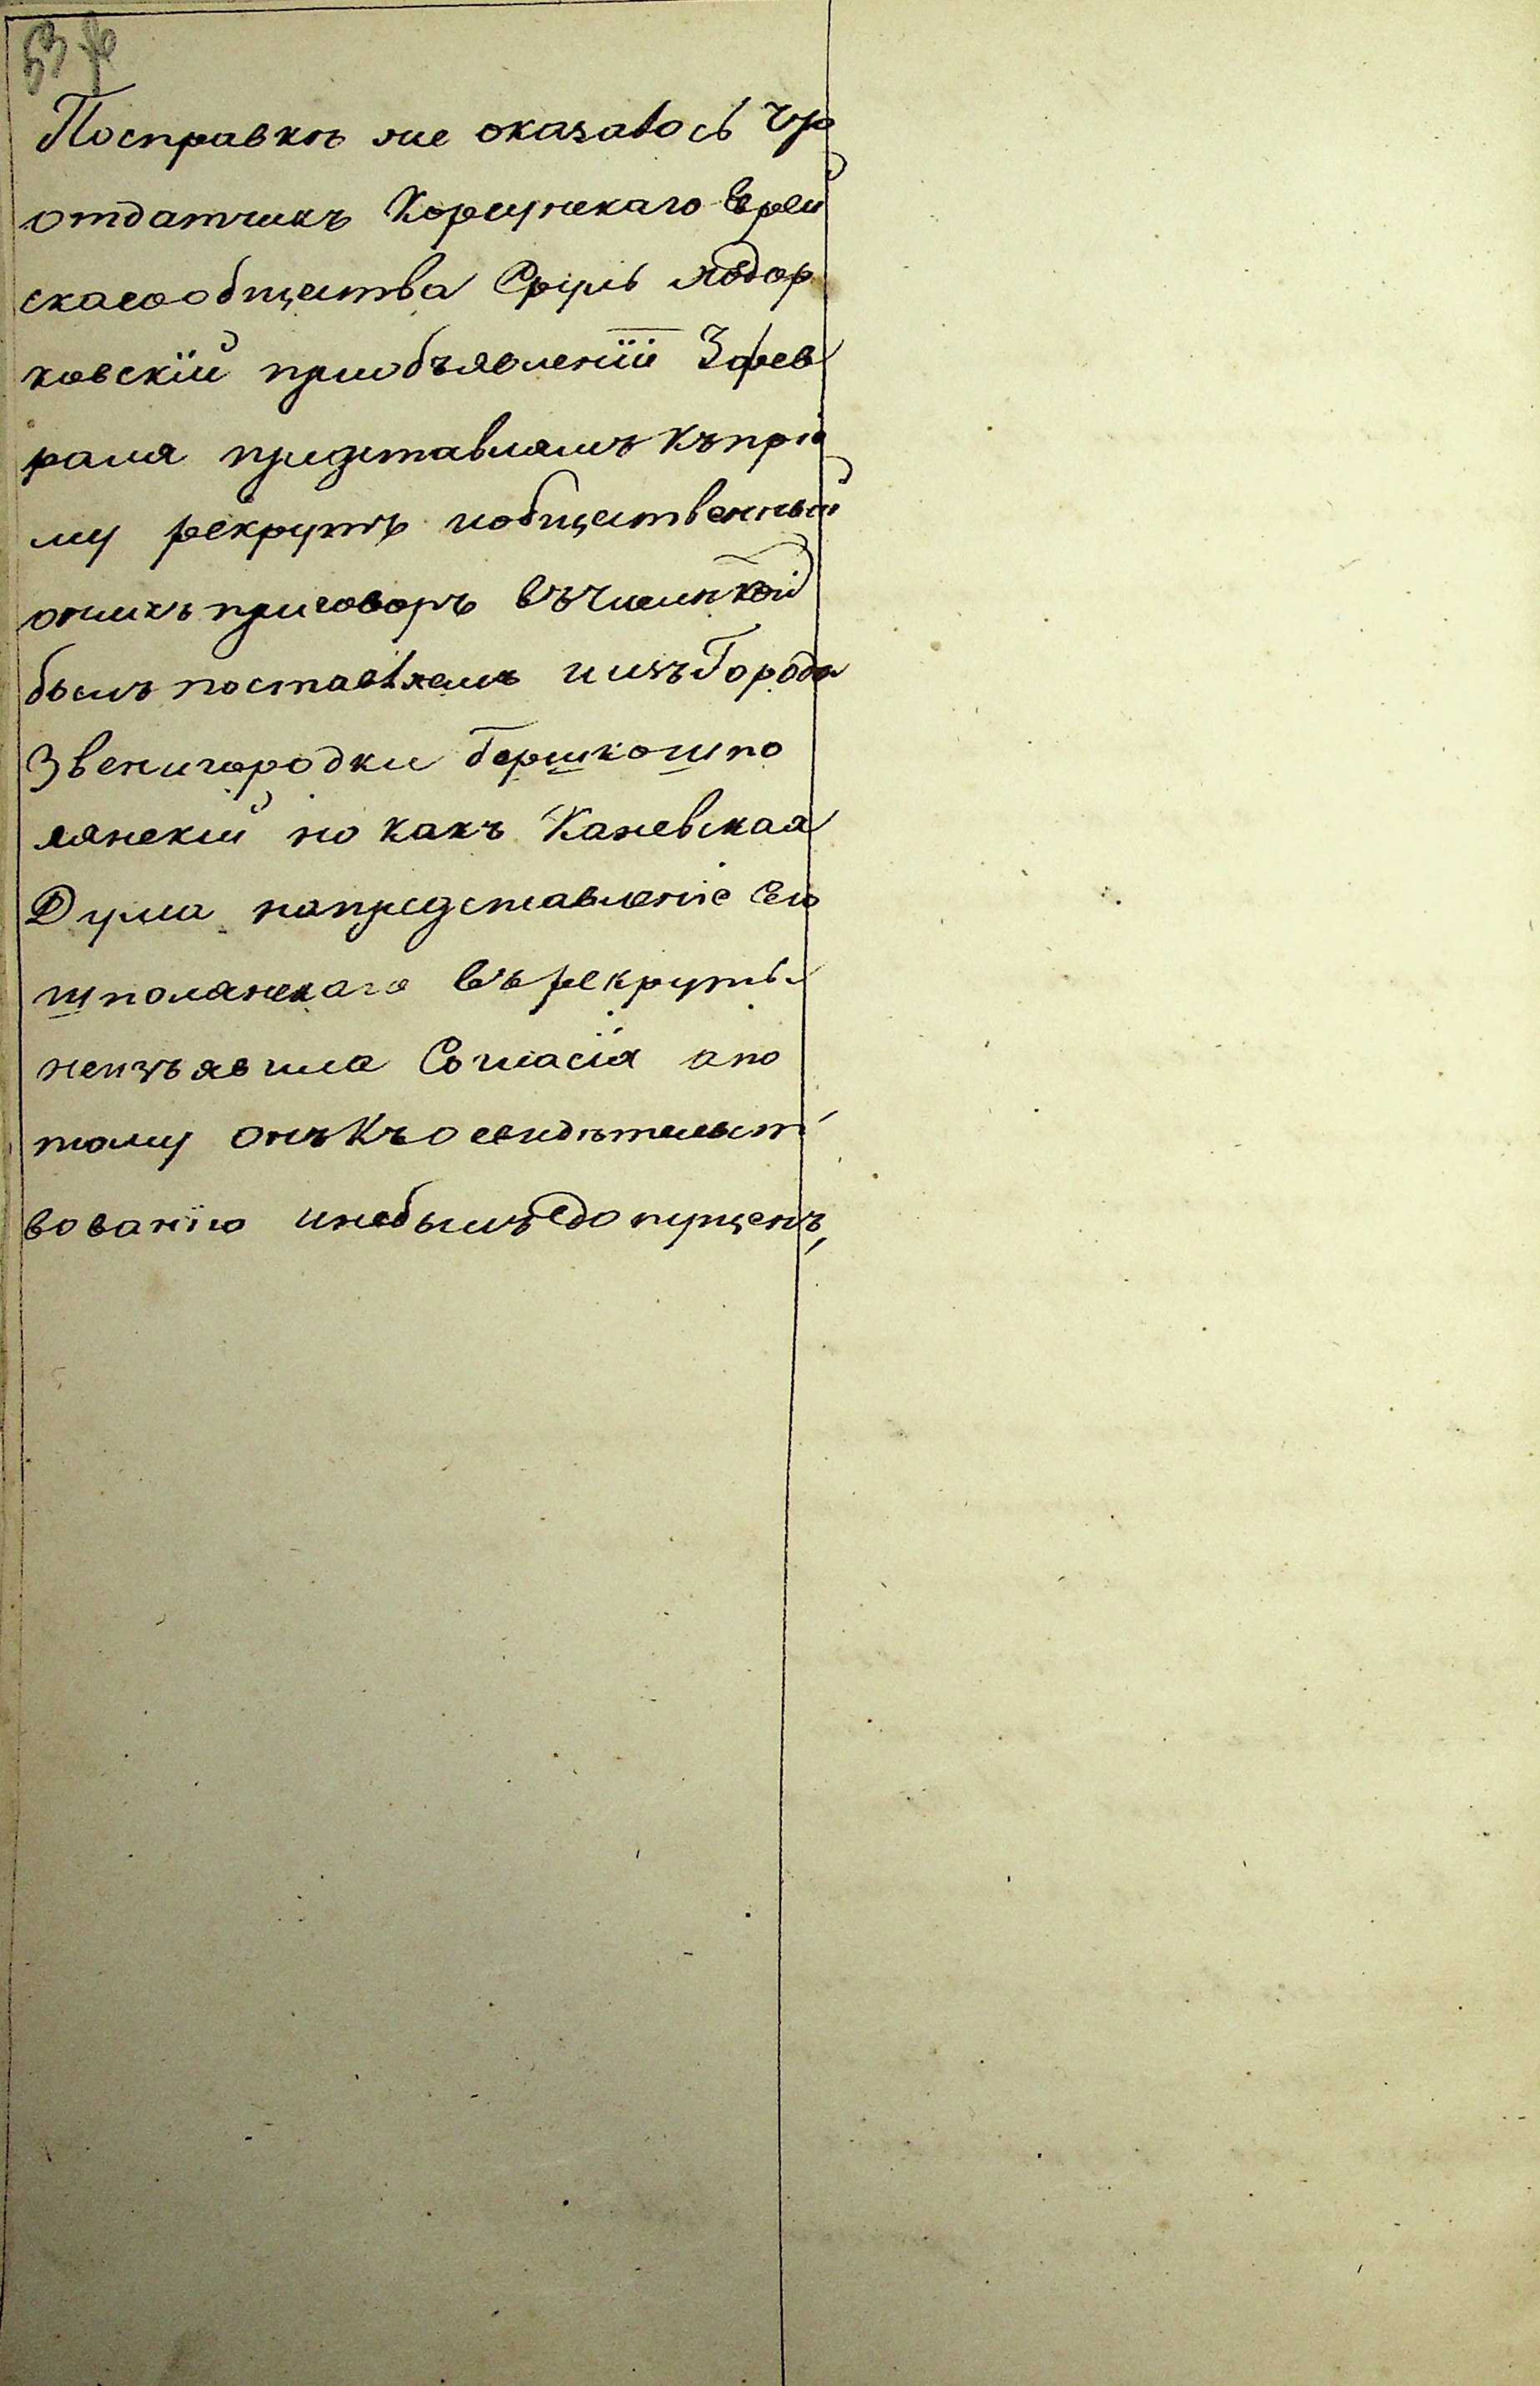 53
Посправкѣ же оказалось что
отдатчикъ Корсунскаго Еврей
скагообщества Сруль
ковскій приобъявленіи 3 фев
раля представлялъ къпріе
му рекрутъ иобщественный
онихъ приговоръ въчислѣ кои
былъ поставляемъ иизъ Города
Звенигородки Бершко шпо
лянский но какъ Каневская
Дума напредставленіе Его
шполянскаго въ рекруты
неизъявила Согласія апо
тому онъ Къосвидѣтельст
вованію инебылъ допущенъ,